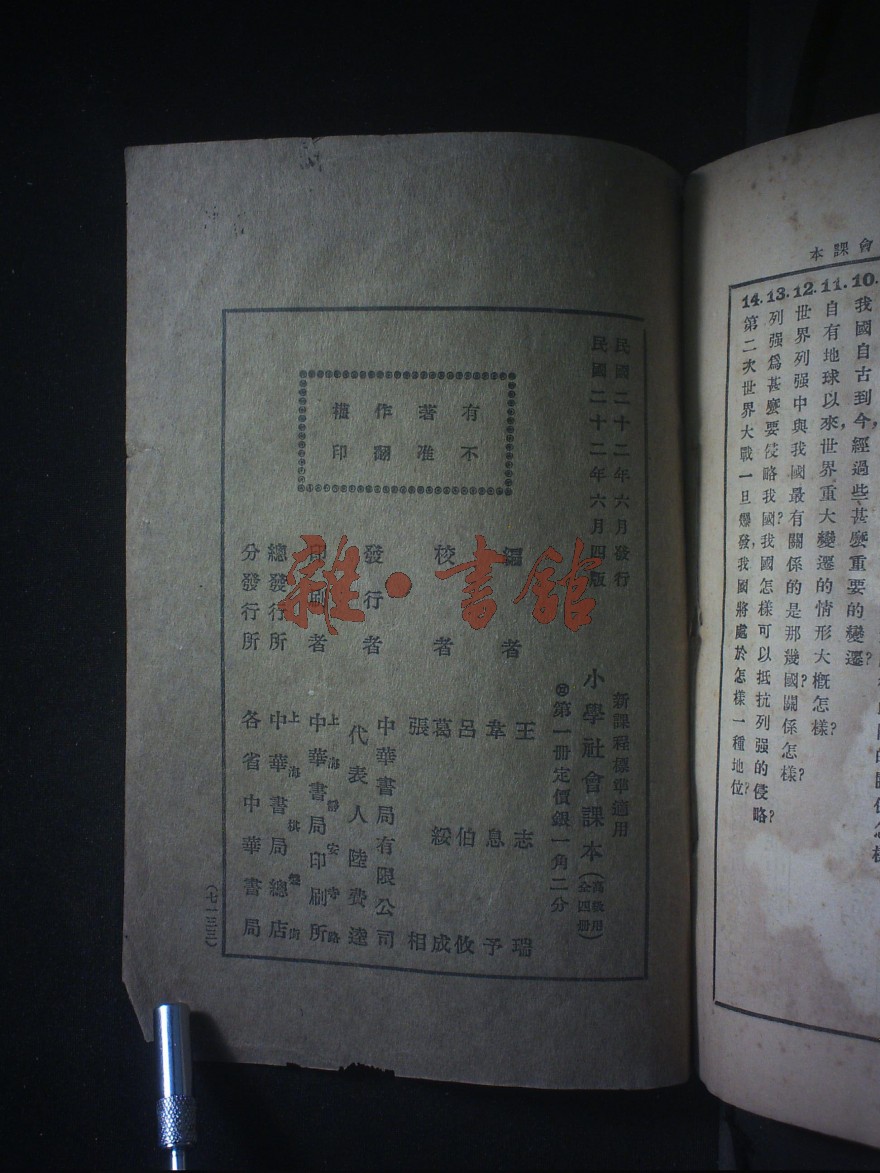 會課本
10. 我國自古到今，經過些甚麼重要的變遷？
11. 自有地球以來，世界重大變遷的情形大概怎樣？
12. 世界列强中與我國最有關係的是那幾國？關係怎樣？
13. 列强爲甚麼要侵略我國？我國怎樣可以抵抗列强的侵略？
14. 第二次世界大戰一旦爆發，我國將處於怎樣一種地位？
民國二十二年六月發行
民國二十二年六月四版
有著作權
不准翻印
新課程標準適用
小學社會課本（高級用全四册）
第一册定價銀一角二分
編者
王志瑞
韋息予
校者
呂伯攸
葛綏成
張相
發行者
中華書局有限公司
代表人陸費逵
印刷者
上海靜安寺路
中華書局印刷所
總發行所
上海棋盤街
中華書局總店
分發行所
各省中華書局
（七一三三）
雜·書館